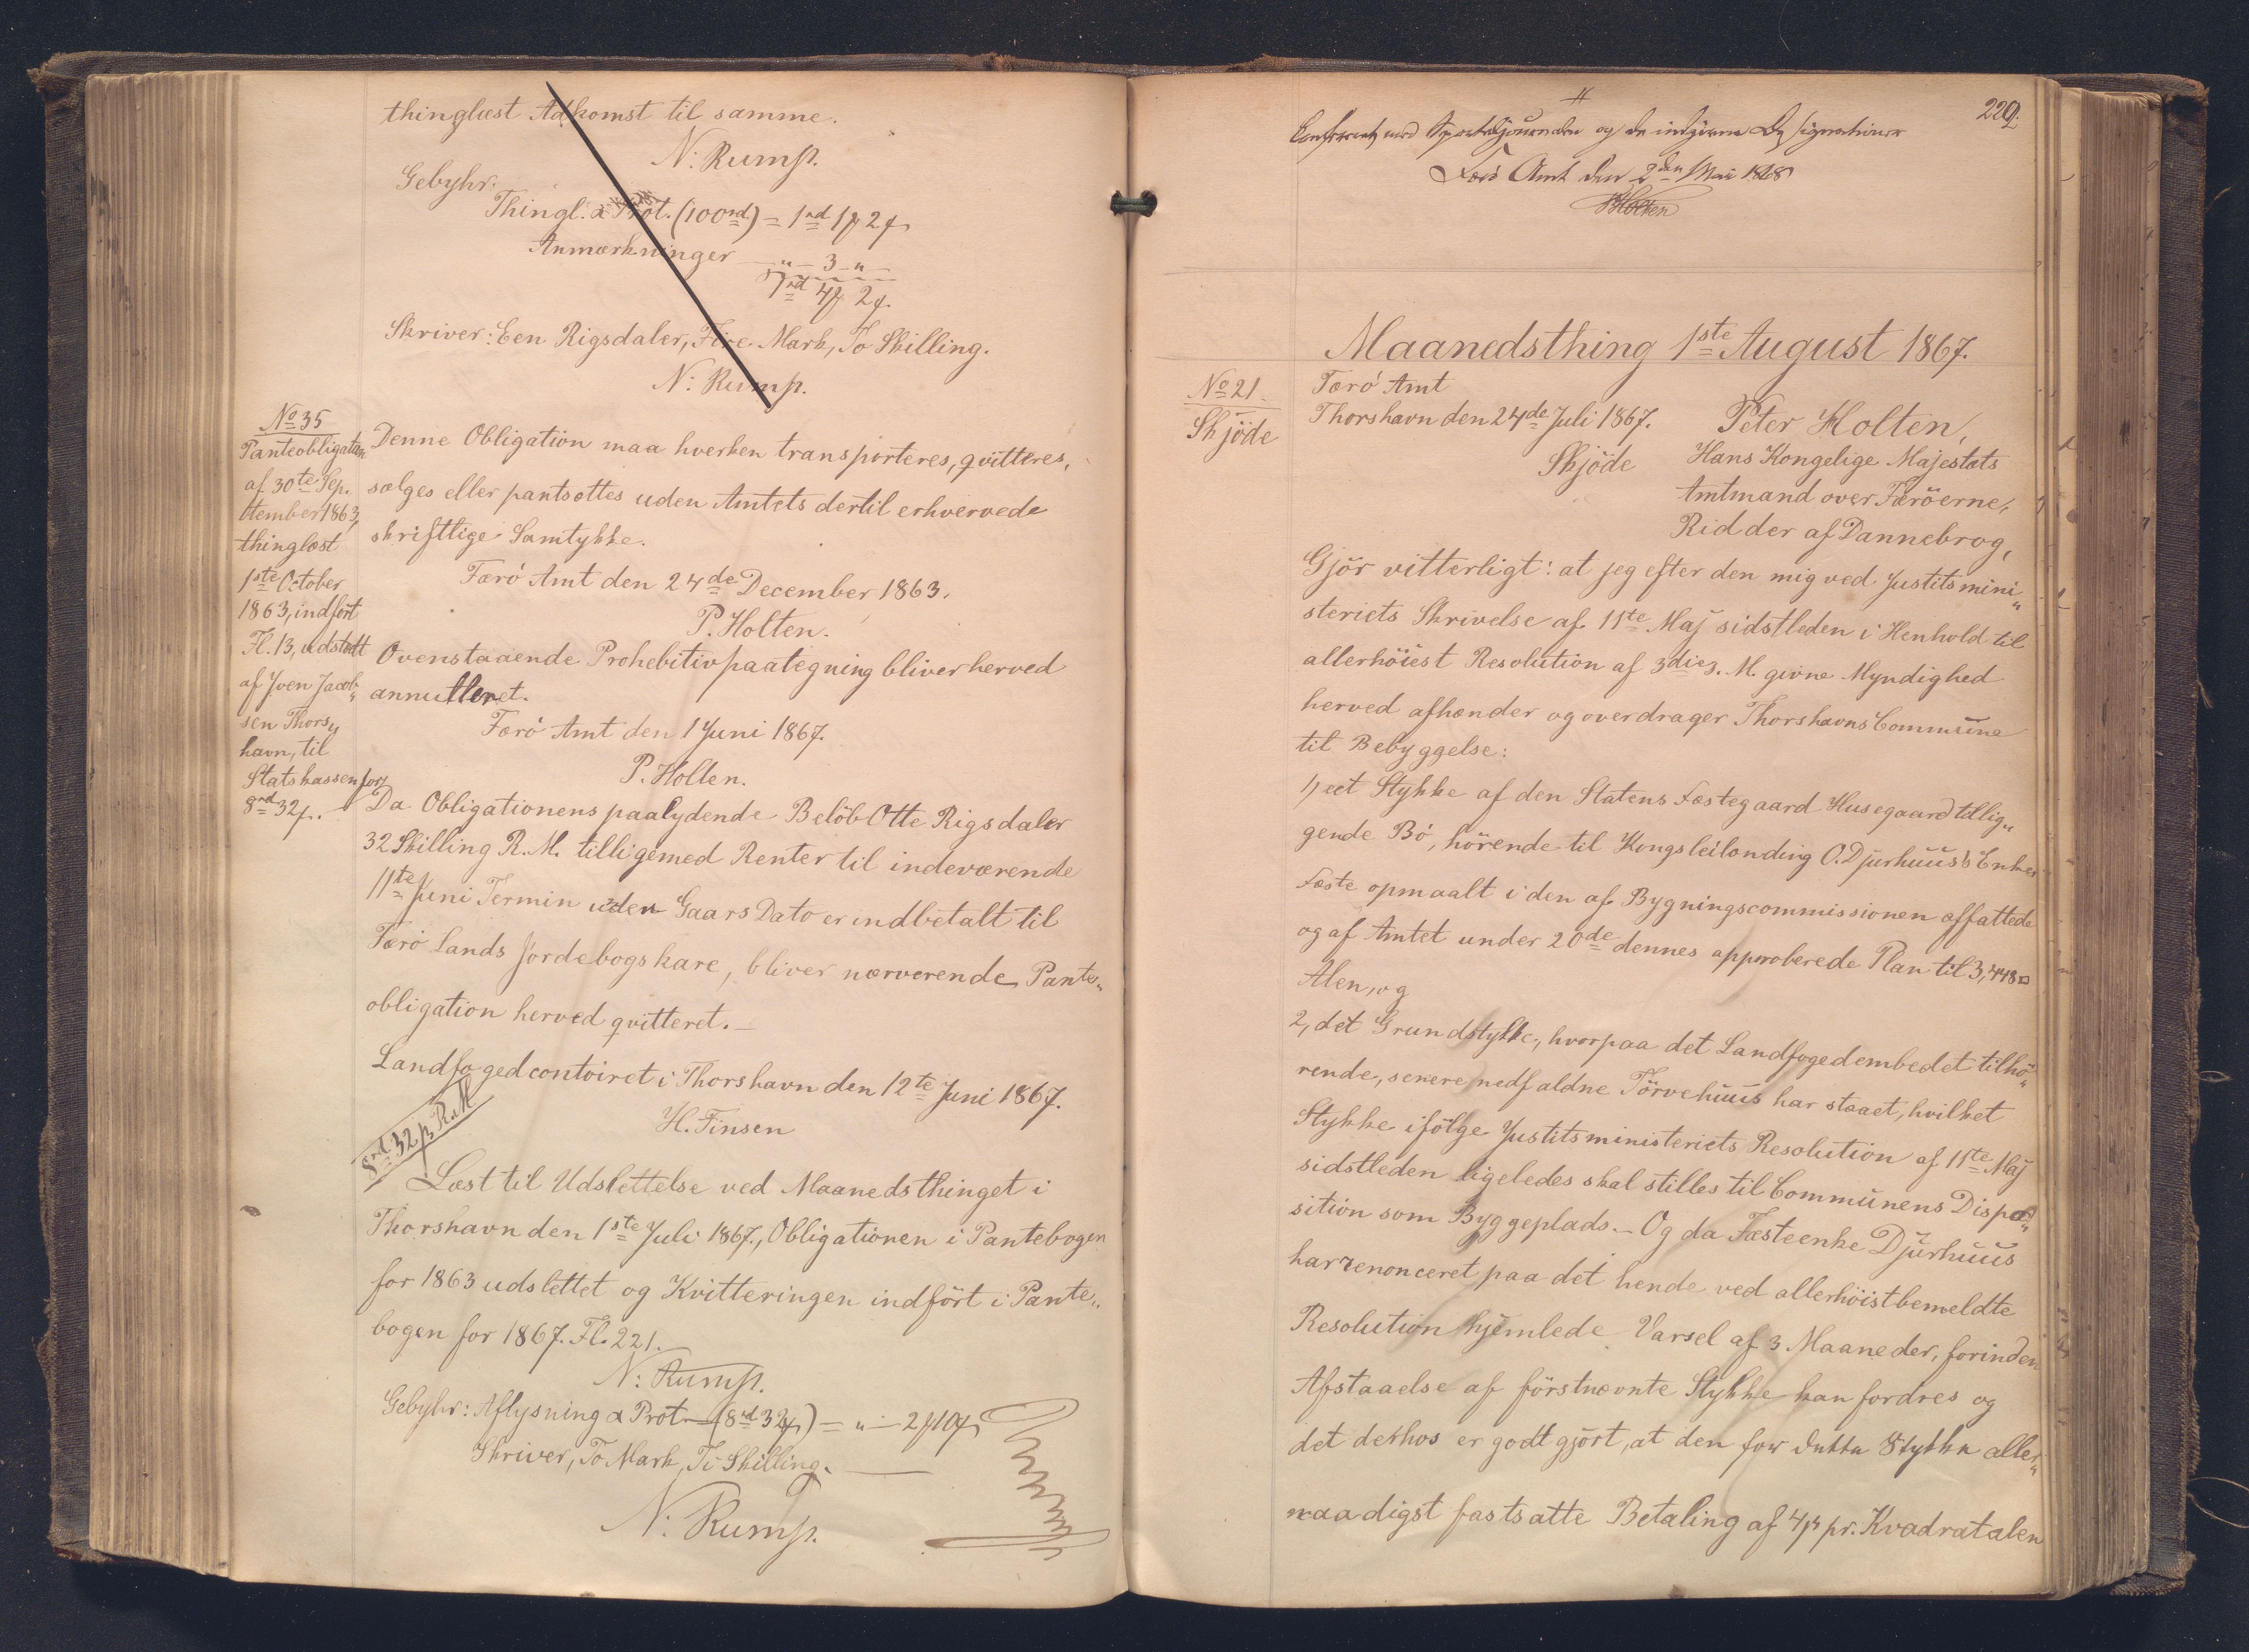 thinglæst Adkomst til samme.
N: Rump.
Gebyhr:
Thingl. & Prot. (100rd) = 1rd 1ꝟ 2ꝭ
Anmærkninger — " — 3 — " —
1rd 4ꝟ 2ꝭ.
Skriver: Een Rigsdaler, Fire Mark, To Skilling.
N: Rump.
No 35
Panteobligation
af 30te Sep.
tember 1863,
thinglæst
1ste October
1863, indført
Fl. 13, udstædt
af Joen Jacob„
sen Thors„
havn, til
Statskassen for
8rd 32ꝭ.
Denne Obligation maa hverken transporteres, qvitteres,
sælges eller pantsættes uden Amtets dertil erhvervede
skriftlige Samtykke.
Færö Amt den 24de December 1863.
P. Holten.
Ovenstaaende Prohebitivpaategning bliver herved
annulleret.
Færö Amt den 1 Juni 1867.
P. Holten.
Da Obligationens paalydende Belöb Otte Rigsdaler
32 Skilling R. M. tilligemed Renter til indeværende
11te Juni Termin uden Gaars Dato er indbetalt til
Færö Lands Jordebogskare, bliver nærværende Pante„
obligation herved qvitteret. —
Landfogedcontoiret i Thorshavn den 12te Juni 1867.
H. Finsen
8rd 32 ß R. M
Læst til Udslettelse ved Maanedsthinget i
Thorshavn den 1ste Juli 1867, Obligationen i Pantebogen
for 1863 udslettet og Kvitteringen indfört i Pante„
bogen for 1867. Fl. 221.
N: Rump.
Gebyhr: Aflysning & Prot — (8rd 32ꝭ) = " — 2ꝟ 10ꝭ
Skriver, To Mark, Ti Skilling. —
N: Rump.
229.
Confereret med Sporteljournalen og de indgivne Designationer
Færö Amt den 2den Mai 1868
PHolten
Maanedsthing 1ste August 1867.
No 21.
Skjöde
Færö Amt
Thorshavn den 24de Juli 1867.
Skjöde
Peter Holten,
Hans Kongelige Majestæts
Amtmand over Færöerne,
Ridder af Dannebrog,
Gjör vitterligt: at jeg efter den mig ved Justitsmini„
steriets Skrivelse af 11te Maj sidstleden i Henhold til
allerhöiest Resolution af 3die s. M. givne Myndighed
herved afhænder og overdrager Thorshavns Commune
til Bebyggelse:
1, eet Stykke af den Statens Fæstegaard Husegaard tillig„
gende Bö, hörende til Kongsleilænding O. Djurhuus's Enkes
Fæste opmaalt i den af Bygningscommissionen affattede
og af Amtet under 20de dennes approberede Plan til 3,448 □
Alen, og
2, det Grundstykke, hvorpaa det Landfogedembedet tilhö„
rende, senere nedfaldne Törvehuus har staaet, hvilket
Stykke ifölge Justitsministeriets Resolution af 11te Maj
sidstleden ligeledes skal stilles til Communens Dispo„
sition som Byggeplads. — Og da Fæsteenke Djurhuus
har renonceret paa det hende ved allerhöistbemeldte
Resolution hjemlede Varsel af 3 Maaneder, forinden
Afstaaelse af förstnævnte Stykke kan fordres og
det derhos er godtgjört, at den for dette Stykke aller„
naadigst fastsatte Betaling af 4ß pr. Kvadratalen